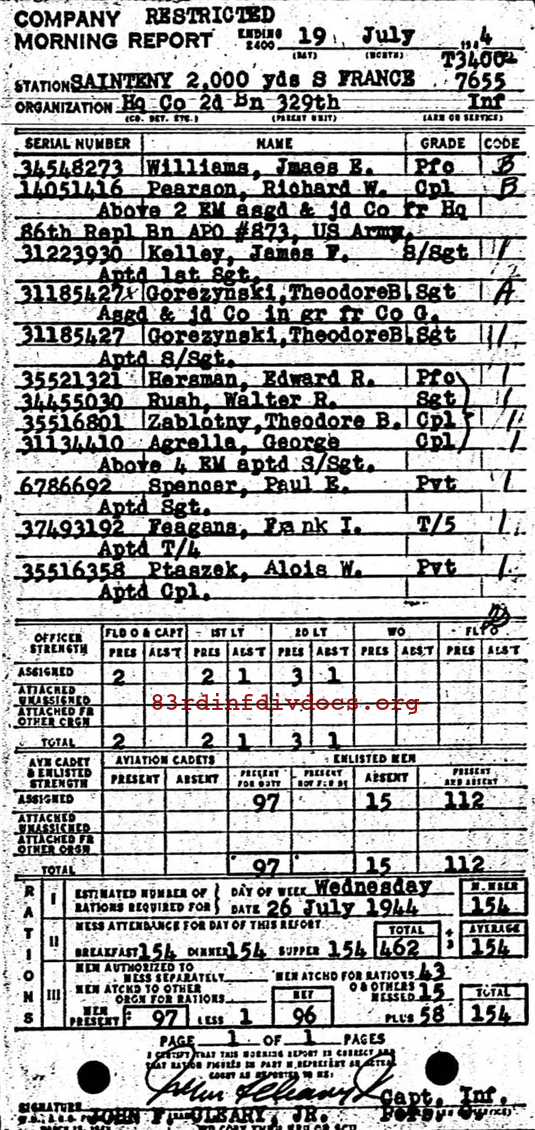 COMPANY RESTRICTED
MORNING REPORT ENDING 2400 19 July 4
(DAY) (MONTH)
T3400
STATION SAINTENY 2,000 yds S FRANCE 7655
ORGANIZATION Hq Co 2d Bn 329th Inf
(CO. DET. ETC.) (PARENT UNIT) (ARM OR SERVICE)
SERIAL NUMBER NAME GRADE CODE
34548273 Williams, Jmaes E. Pfc B
14051416 Pearson, Richard W. Cpl B
Above 2 EM asgd & jd Co fr Hq
86th Repl Bn APO #873, US Army.
31223930 Kelley, James F. S/Sgt 1
Aptd 1st Sgt.
31185427x Gorezynski,TheodoreB. Sgt A
Asgd & jd Co in gr fr Co G.
31185427 Gorezynski,TheodoreB. Sgt
Aptd S/Sgt.
35521321 Hersman, Edward R. Pfc 1
34455030 Rush, Walter R. Sgt 1
35516801 Zablotny,Theodore B. Cpl
31134410 Agrella, George Cpl 1
Above 4 EM aptd S/Sgt.
6786692 Spencer, Paul E. Pvt 1
Aptd Sgt.
37493192 Feagans, Frank I. T/5 1
Aptd T/4
35516358 Ptaszek, Alois W. Pvt 1
Aptd Cpl.
OFFICER STRENGTH FLD O & CAPT 1ST LT 2D LT WO FLT O
PRES ABS'T PRES ABS'T PRES ABS'T PRES ABS'T PRES ABS'T
ASSIGNED 2 2 1 3 1
ATTACHED UNASSIGNED
83rdinfdivdocs.org
ATTACHED FR OTHER ORGN
TOTAL 2 2 1 3 1
AVN CADET & ENLISTED STRENGTH AVIATION CADETS ENLISTED MEN
PRESENT ABSENT PRESENT FOR DUTY PRESENT NOT FOR DY ABSENT PRESENT AND ABSENT
ASSIGNED 97 15 112
ATTACHED UNASSIGNED
ATTACHED FR OTHER ORGN
TOTAL 97 15 112
RATIONS
I ESTIMATED NUMBER OF RATIONS REQUIRED FOR DAY OF WEEK Wednesday NUMBER
DATE 26 July 1944 154
II MESS ATTENDANCE FOR DAY OF THIS REPORT TOTAL ÷ 3 AVERAGE
BREAKFAST 154 DINNER 154 SUPPER 154 462 154
III MEN AUTHORIZED TO MESS SEPARATELY MEN ATCHD FOR RATIONS 43
MEN ATCHD TO OTHER ORGN FOR RATIONS O & OTHERS MESSED 15 TOTAL
MEN PRESENT 97 LESS 1 NET 96 PLUS 58 154
PAGE 1 OF 1 PAGES
I CERTIFY THAT THIS MORNING REPORT IS CORRECT AND
THAT RATION FIGURES IN PART III REPRESENT AN ACTUAL
COUNT AS REPORTED TO ME:
Capt. Inf.
SIGNATURE JOHN F. OLEARY, JR. Pers. O.